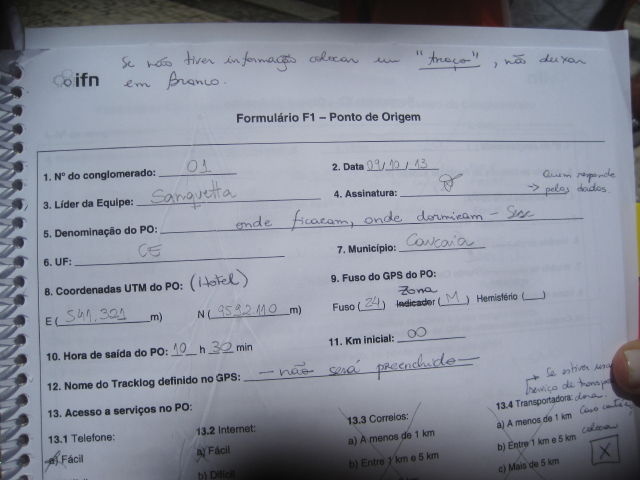 Se não tiver informação colocar um "traço", não deixar
em branco.
ifn
Formulário F1 – Ponto de Origem
1. Nº do conglomerado: 01
2. Data 09/10/13
3. Líder da Equipe: Sanquetta
4. Assinatura: → Quem responde pelos dados.
5. Denominação do PO: onde ficaram, onde dormiram – Sesc
6. UF: CE
7. Município: Caucaia
8. Coordenadas UTM do PO: (Hotel)
9. Fuso do GPS do PO:
E (541.321 m) N (9592110 m)
Fuso (24) Zona Indicador (M) Hemisfério ( )
10. Hora de saída do PO: 10 h 30 min
11. Km inicial: 00
12. Nome do Tracklog definido no GPS: – não será preenchido –
13. Acesso a serviços no PO:
→ Se estiver
serviço de
13.1 Telefone:
13.2 Internet:
13.3 Correios:
13.4 Transportadora:
a) Fácil
a) Fácil
a) A menos de 1 km
a) A menos de 1 km caso
b) Difícil
b) Entre 1 km e 5 km
b) Entre 1 km e 5 km colocar
c) Mais de 5 km
X